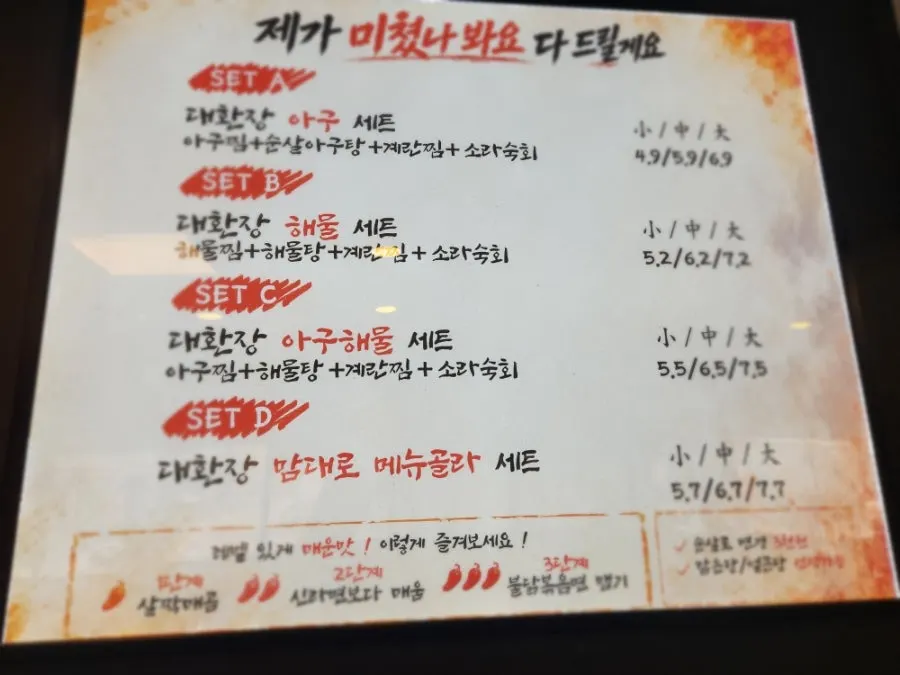 제가 미쳤나 봐요 다 드릴게요
SET A
대환장 아구 세트
小 / 中 / 大
아구찜+순살아구탕+계란찜+소라숙회
4.9/5.9/6.9
SET B
대환장 해물 세트
小 / 中 / 大
해물찜+해물탕+계란찜+소라숙회
5.2/6.2/7.2
SET C
대환장 아구해물 세트
小 / 中 / 大
아구찜+해물탕+계란찜+소라숙회
5.5/6.5/7.5
SET D
대환장 맘대로 메뉴골라 세트
小 / 中 / 大
5.7/6.7/7.7
레벨 있게 매운맛! 이렇게 즐겨보세요!
1단계 2단계 3단계
살짝매콤 신라면보다 매움 불닭볶음면 맵기
순살로 변경 3천원
맑은탕/얼큰탕